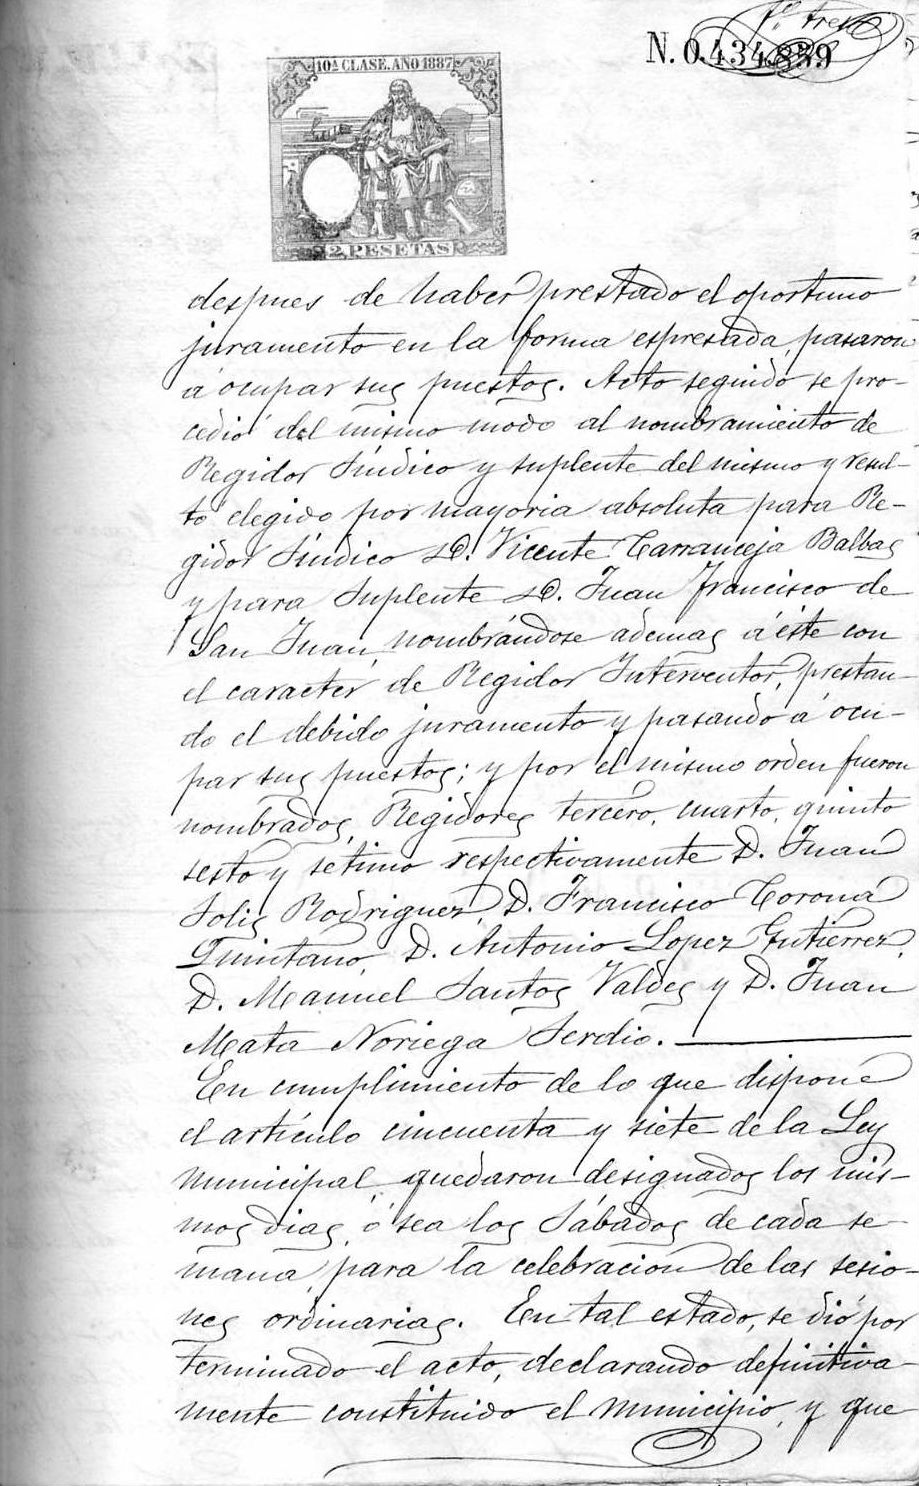 Fº. tres
N. 0.434,859
10ª CLASE. AÑO 1887
2. PESETAS
despues de haber prestado el oportuno
juramento en la forma espresada, pasaron
á ocupar sus puestos. Acto seguido se pro-
cedió del mismo modo al nombramiento de
Regidor Síndico y suplente del mismo y resul-
tó elegido por mayoria absoluta para Re-
gidor Síndico D. Vicente Carranceja Balbas
y para Suplente D. Juan Francisco de
San Juan, nombrándose ademas á éste con
el caracter de Regidor Interventor, prestan-
do el debido juramento y pasando á ocu-
par sus puestos; y por el mismo orden fueron
nombrados, Regidores tercero, cuarto, quinto
sesto y sétimo respectivamente D. Juan
Solis Rodriguez, D. Francisco Corona
Quintano, D. Antonio Lopez Gutierrez,
D. Manuel Santos Valdes y D. Juan
Mata Noriega Serdio.
En cumplimiento de lo que dispone
el artículo cincuenta y siete de la Ley
municipal, quedaron designados los mis-
mos dias, ó sea los Sábados de cada se-
mana, para la celebracion de las sesio-
nes ordinarias. En tal estado, se dió por
terminado el acto, declarando definitiva-
mente constituido el municipio, y que